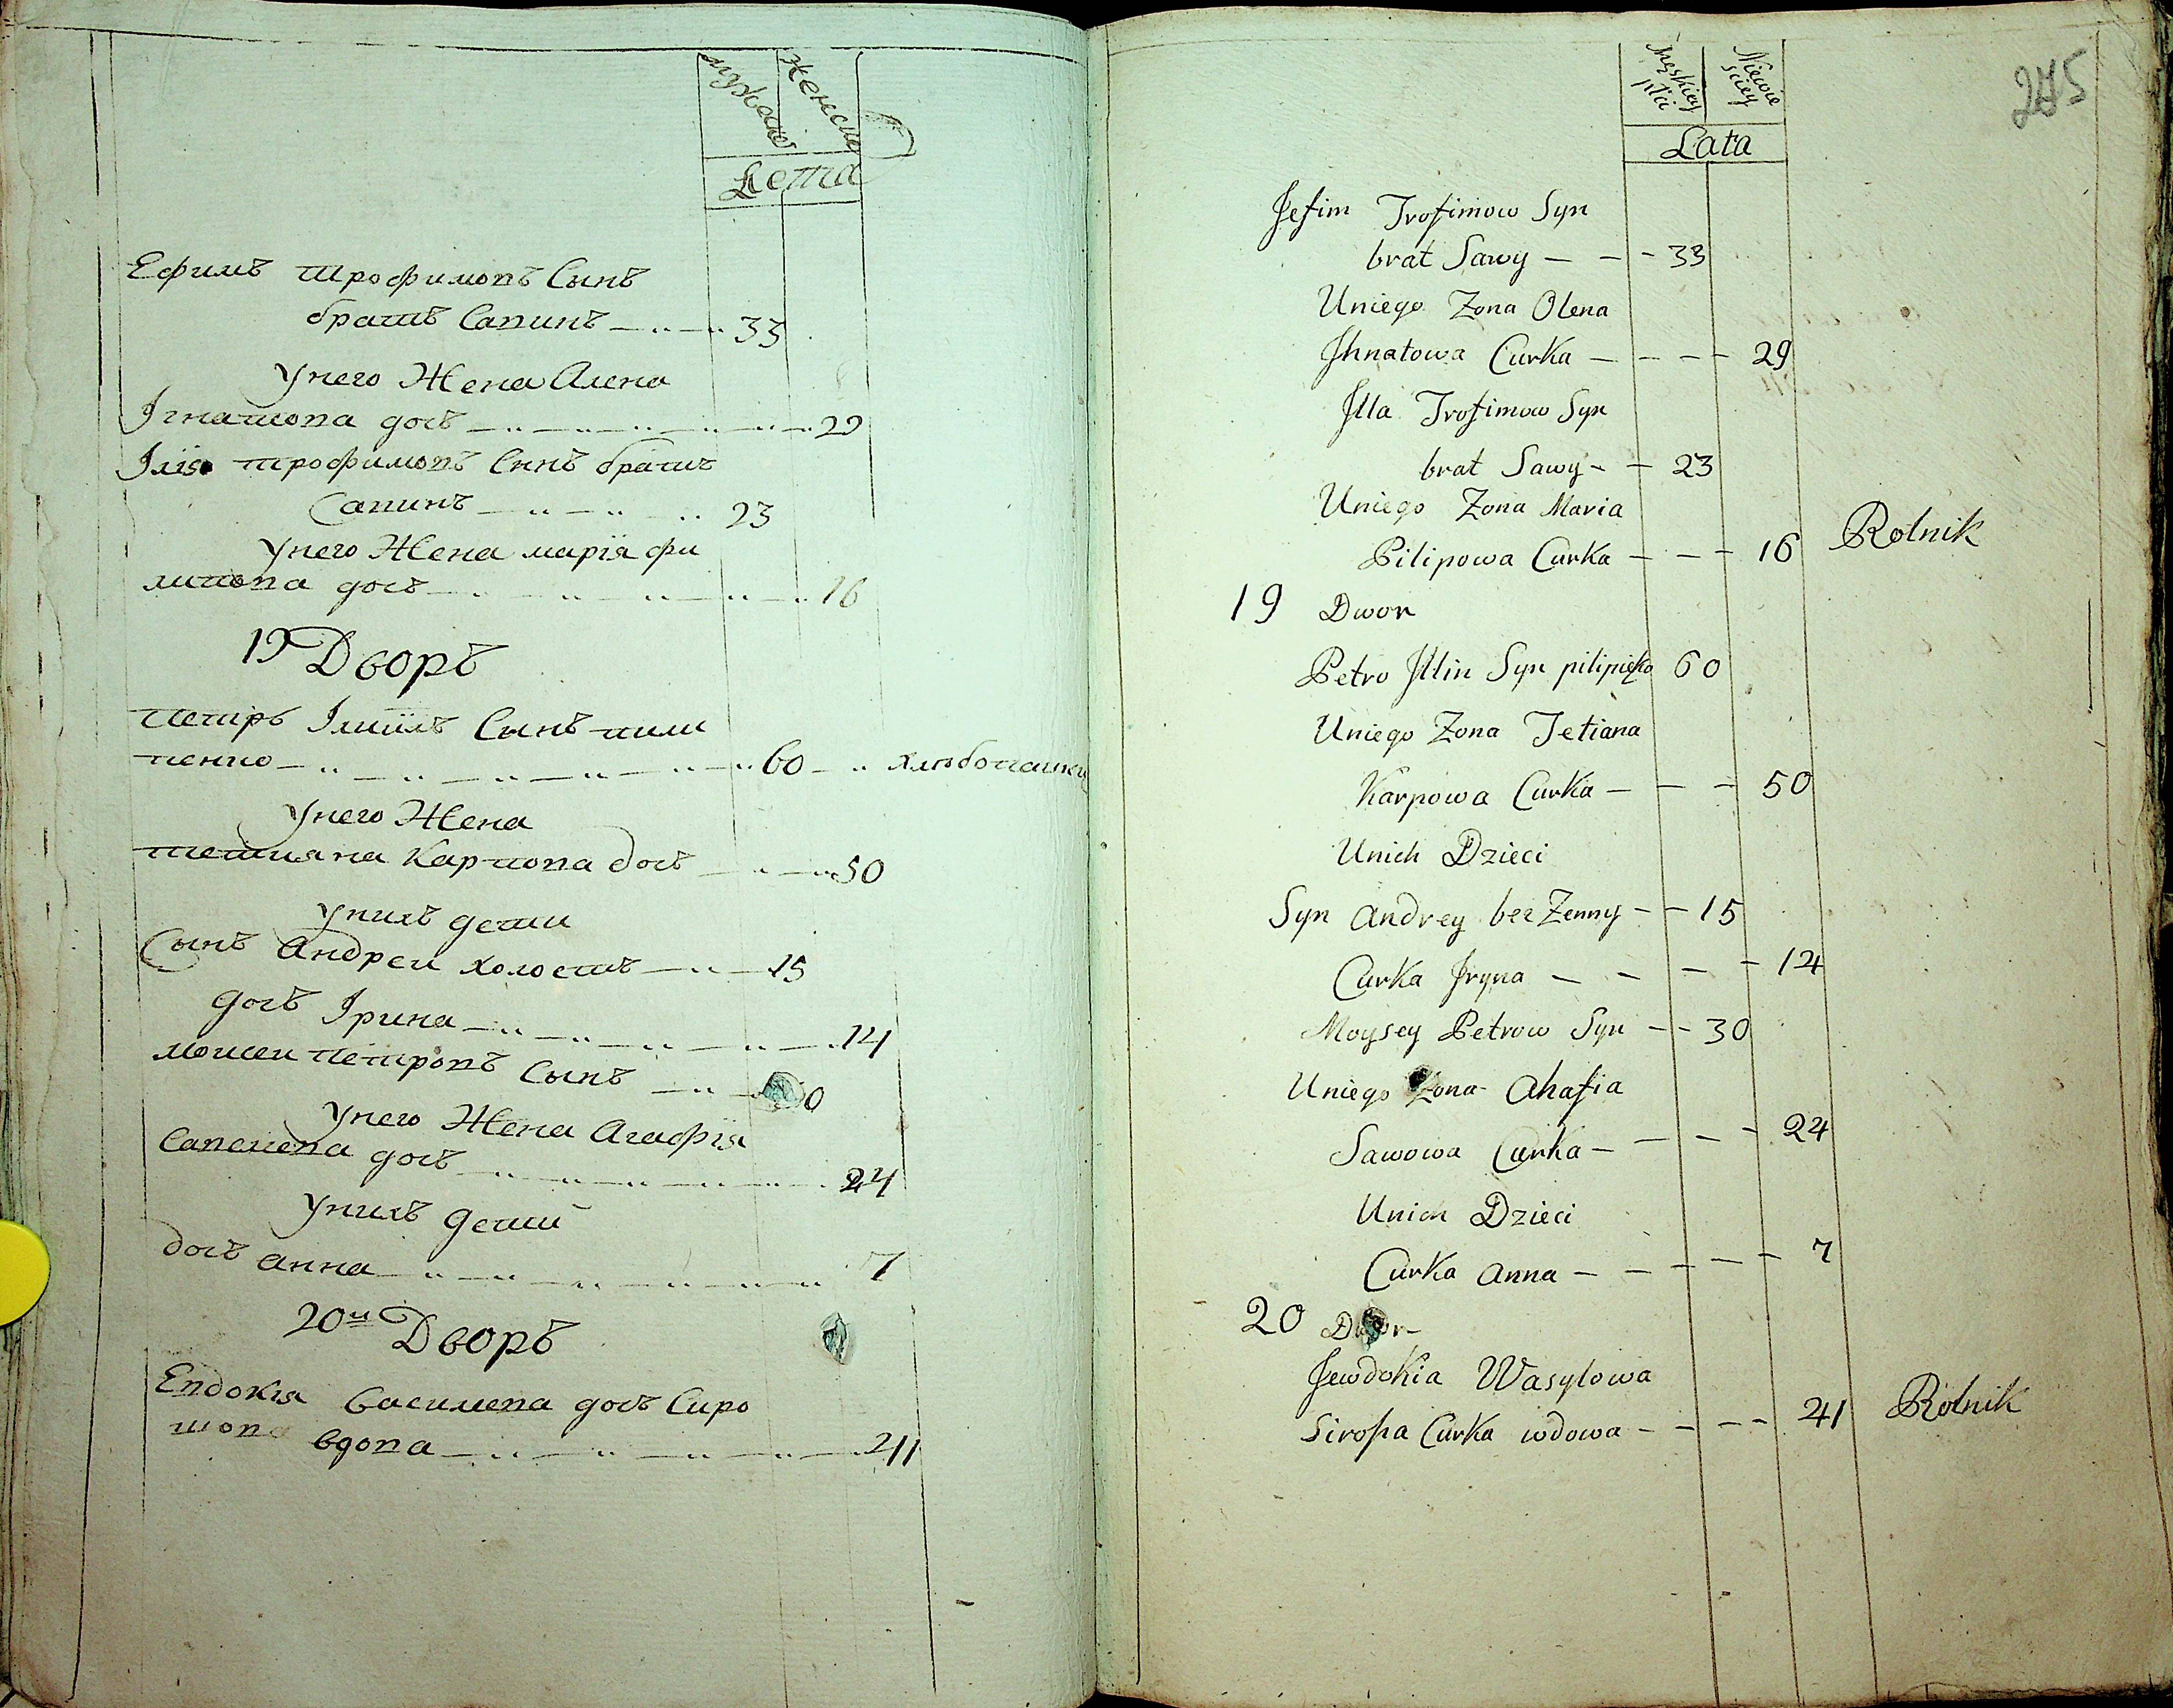 мужеска
женска
Лета
Ефимъ Трофимовъ Сынъ
братъ Савинъ 33
Унего Жена Алена
Iгнатова дочь 29
Iлія Трофимовъ Сынъ братъ
Савинъ 23
Унего Жена марія фи
липова дочь 16
19 Дворъ
Петръ Iлиінъ Сынъ пили
пенко 60 хлебопашец
Унего Жена
Тетияна Карпова дочь 50
Унихъ дети
Сынъ Андреи холостъ 15
дочь Iрина 14
моисеи Петровъ Сынъ 0
Унего Жена Агафія
Савелева дочь 24
Унихъ дети
дочь анна 7
20й Дворъ
Евдокія василева дочь Сиро
шова вдова 41
275
męskiey płci
Niewie sciey
Lata
Jefim Trofimow Syn
brat Sawy - - - 33
Uniego Zona Olena
Jhnatowa Curka - - - - 29
Jlla Trofimow Syn
brat Sawy - - 23
Uniego Zona Maria
Pilipowa Curka - - - 16 Rolnik
19 Dwor
Petro Jllin Syn pilipięko 60
Uniego Zona Tetiana
Karpowa Curka - - - 50
Unich Dzieci
Syn Andrey bez Zenny - - 15
Curka Jryna - - - - 14
Moysey Petrow Syn - - 30
Uniego Zona Ahafia
Sawowa Curka - - - - 24
Unich Dzieci
Curka Anna - - - - - 7
20 Dwor
Jewdokia Wasylowa
Sirosza Curka wdowa - - - - 41 Rolnik